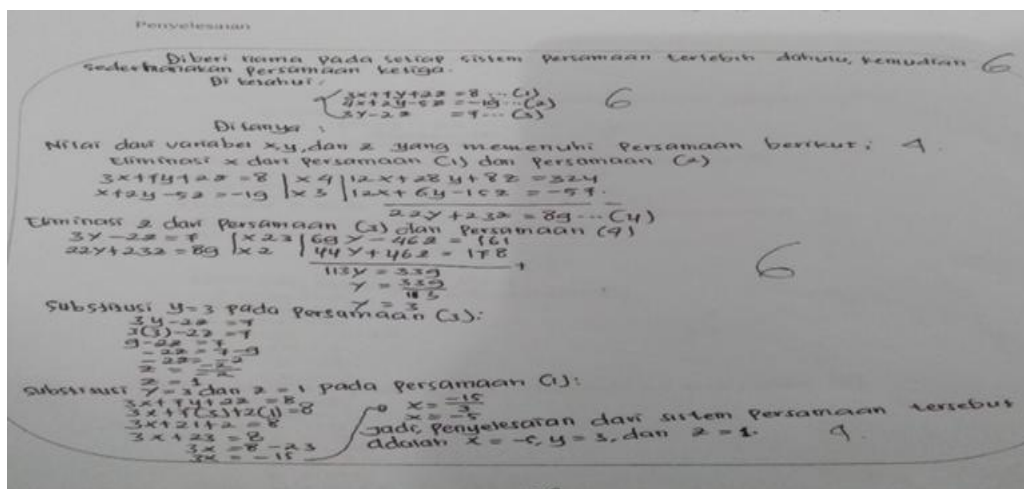 Penyelesaian
Diberi nama pada setiap sistem persamaan tersebut dahulu, kemudian 6
sederhanakan persamaan ketiga.
Diketahui:
3x+7y+2z = 8 ... (1) 6
4x+2y-5z = -19 ... (2)
3y-2z = 7 ... (3)
Ditanya :
Nilai dari variabel x,y, dan z yang memenuhi persamaan berikut: 4.
Eliminasi x dari persamaan (1) dan persamaan (2)
3x+7y+2z = 8 | x4 | 12x+28y+8z = 324
x+2y-5z = -19 | x3 | 12x+6y-15z = -57.
22y+23z = 89 ... (4)
Eliminasi z dari persamaan (3) dan persamaan (4)
3y-2z = 7 | x23 | 69y-46z = 161
22y+23z = 89 | x2 | 44y+46z = 178 6
+
113y = 339
y = 339/113
y = 3
Substitusi y=3 pada persamaan (3):
3y-2z = 7
3(3)-2z = 7
9-2z = 7
-2z = 7-9
-2z = -2
z = 1
Substitusi y=3 dan z=1 pada persamaan (1):
3x+7y+2z = 8
3x+7(3)+2(1) = 8
3x+21+2 = 8
3x+23 = 8
3x = 8-23
3x = -15
x = -15/3
x = -5
Jadi, penyelesaian dari sistem persamaan tersebut
adalah x = -5, y = 3, dan z = 1. 4.